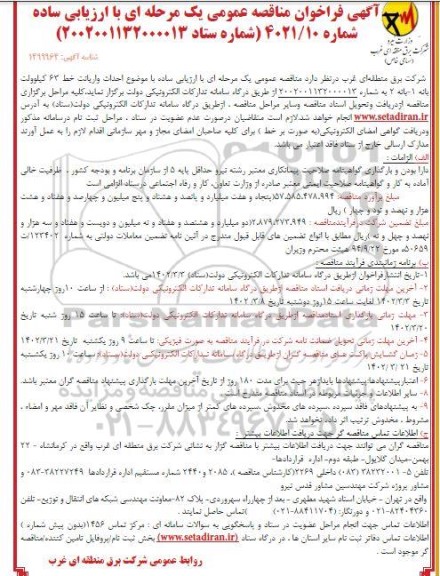 آگهی فراخوان مناقصه عمومی یک مرحله ای با ارزیابی ساده
شماره ۴۰۲۱/۱۰ (شماره ستاد ۲۰۰۲۰۰۱۱۳۲۰۰۰۰۱۳)
وزارت نیرو
شرکت برق منطقه ای غرب
(سهامی خاص)
شناسه آگهی: ۱۴۹۹۹۶۳
شرکت برق منطقه‌ای غرب درنظر دارد مناقصه عمومی یک مرحله ای با ارزیابی ساده با موضوع احداث واریانت خط ۶۳ کیلوولت
بانه ۱-بانه ۲ به شماره ۲۰۰۲۰۰۱۱۳۲۰۰۰۰۱۳ از طریق درگاه سامانه تدارکات الکترونیکی دولت برگزار نماید.کلیه مراحل برگزاری
مناقصه ازدریافت وتحویل اسناد مناقصه وسایر مراحل مناقصه ، ازطریق درگاه سامانه تدارکات الکترونیکی دولت(ستاد) به آدرس
www.setadiran.ir انجام خواهد شد.لازم است متقاضیان درصورت عدم عضویت در ستاد ، مراحل ثبت نام درسامانه مذکور
ودریافت گواهی امضای الکترونیکی(به صورت بر خط ) برای کلیه صاحبان امضای مجاز و مهر سازمانی اقدام لازم را به عمل آورند
مدارک ارسالی خارج از ستاد فاقد اعتبار می باشد.
الف) الزامات :
دارا بودن و بارگذاری گواهینامه صلاحیت پیمانکاری معتبر رشته نیرو حداقل پایه ۵ از سازمان برنامه و بودجه کشور ، ظرفیت خالی
آماده به کار و گواهینامه صلاحیت ایمنی معتبر صادره از وزارت تعاون، کار و رفاه اجتماعی دراسناد الزامی است
مبلغ برآورد مناقصه: ۵۷،۵۸۵،۴۷۸،۹۹۴(پنجاه و هفت میلیارد و پانصد و هشتاد و پنج میلیون و چهارصد و هفتاد و هشت
هزار و نهصد و نود و چهار ) ریال
مبلغ تضمین شرکت در فرآیندمناقصه : ۲،۸۷۹،۲۷۳،۹۴۹(دو میلیارد و هشتصد و هفتاد و نه میلیون و دویست و هفتاد و سه هزار و
نهصد و چهل و نه )ریال مطابق با انواع تضمین های قابل قبول مندرج در آئین نامه تضمین معاملات دولتی به شماره ۱۲۳۴۰۲/ت
۵۰۶۵۹ه مورخ ۹۴/۹/۲۲ هیئت محترم وزیران
ب) برنامه زمانبندی فرآیند مناقصه :
۱-تاریخ انتشارفراخوان ازطریق درگاه سامانه تدارکات الکترونیکی دولت(ستاد) ۱۴۰۲/۳/۳می باشد
۲- آخرین مهلت زمانی دریافت اسناد مناقصه ازطریق درگاه سامانه تدارکات الکترونیکی دولت(ستاد) : از ساعت ۱۰روز چهارشنبه
تاریخ ۱۴۰۲/۳/۳ لغایت ساعت ۱۵روز دوشنبه تاریخ ۱۴۰۲/۳/۸
۳- مهلت زمانی بارگذاری اسنادمناقصه ازطریق درگاه سامانه تدارکات الکترونیکی دولت(ستاد): تا ساعت ۱۵ روز شنبه تاریخ
۱۴۰۲/۳/۲۰
۴- آخرین مهلت زمانی تحویل ضمانت نامه شرکت در فرآیند مناقصه به صورت فیزیکی: تا ساعت ۹ روز یکشنبه تاریخ ۱۴۰۲/۳/۲۱
۵- زمان گشایش پاکت های مناقصه گران ازطریق درگاه سامانه تدارکات الکترونیکی دولت(ستاد): ساعت ۱۰ روز یکشنبه
تاریخ ۱۴۰۲/۳/۲۱
۶- اعتبارپیشنهادها:پیشنهادها بایدازهر حیث برای مدت ۱۸۰ روز از تاریخ آخرین مهلت بارگذاری پیشنهاد مناقصه گران معتبر باشد.
۸- سایر اطلاعات و جزئیات مربوطه در اسناد مناقصه مندرج است .
۹- به پیشنهادهای فاقد سپرده ،سپرده های مخدوش ،سپرده های کمتر از میزان مقرر، چک شخصی و نظایر آن فاقد مهر و امضاء ،
مشروط ، مخدوش ترتیب اثر داده نخواهد شد.
ج) اطلاعات تماس مناقصه گر جهت دریافت اطلاعات بیشتر :
مناقصه گران می توانند جهت دریافت اطلاعات بیشتر با مناقصه گزار به نشانی شرکت برق منطقه ای غرب واقع در کرمانشاه - ۲۲
بهمن-میدان گلایول- طبقه دوم- اداره قراردادها-
تلفن ۵-۳۸۲۳۲۰۰۱ (۰۸۳) داخلی ۲۲۶۹(کارشناس مناقصه )، ۲۰۸۵ و ۲۴۴۰ شماره مستقیم اداره قراردادها ۳۸۲۲۷۲۴۹-۰۸۳ و
مشاور پروژه شرکت مهندسین مشاور قدس نیرو
واقع در تهران - خیابان استاد شهید مطهری - بعد از چهارراه سهروردی- پلاک ۸۲-معاونت مهندسی شبکه های انتقال و توزیع- تلفن
۸۲۴۰۴۳۶۰-۰۲۱ و دورنگار: ۸۸۴۱۱۷۰۴-۰۲۱ )تماس حاصل نمایند .
اطلاعات تماس جهت انجام مراحل عضویت در ستاد و پاسخگویی به سوالات سامانه ای : مرکز تماس ۱۴۵۶(بدون پیش شماره )
اطلاعات تماس دفاتر ثبت نام سایر استان ها ، در درگاه ستاد (www.setadiran.ir) بخش ثبت نام/پروفایل تامین کننده/مناقصه
گر موجود است .
روابط عمومی شرکت برق منطقه ای غرب
ParsNamadData
۰۲۱-۸۸۳۴۹۶۷۰